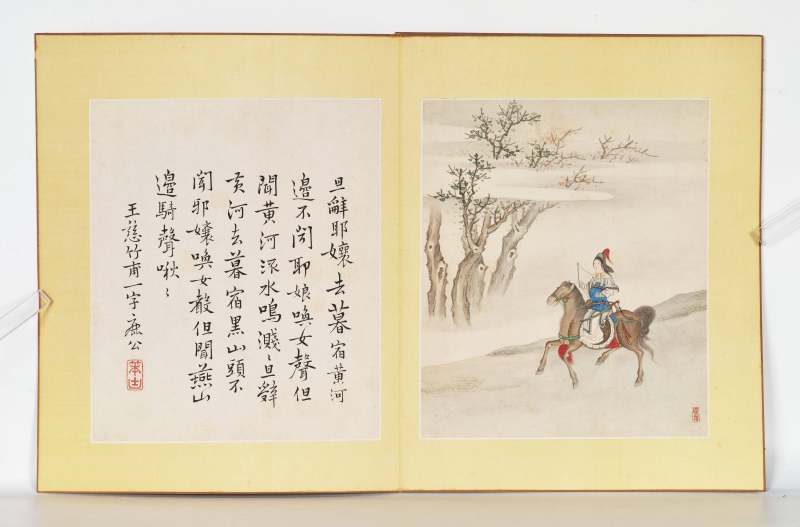 旦辭耶孃去暮宿黃河
邊不聞耶娘喚女聲但
聞黃河流水鳴濺〻旦辭
黃河去暮宿黑山頭不
聞耶孃喚女聲但聞燕山
邊騎聲啾〻
王慈竹甫一字公